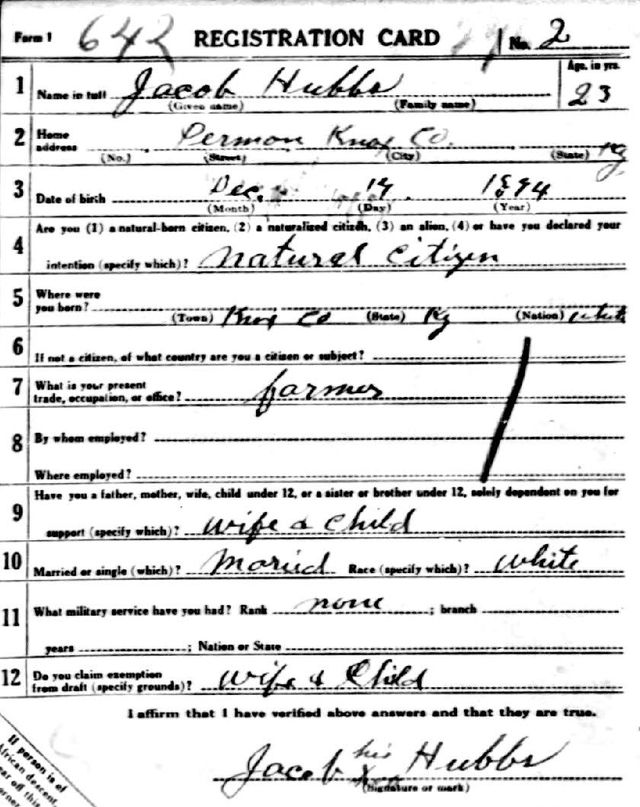 Form 1 642 REGISTRATION CARD No. 2
1 Name in full Jacob Hubbs Age, in yrs. 23
(Given name) (Family name)
2 Home address Permon Knox Co. Ky
(No.) (Street) (City) (State)
3 Date of birth Dec. 19 1894
(Month) (Day) (Year)
4 Are you (1) a natural-born citizen, (2) a naturalized citizen, (3) an alien, (4) or have you declared your
intention (specify which)? natural citizen
5 Where were
you born? (Town) Knox Co (State) Ky (Nation) white
6 If not a citizen, of what country are you a citizen or subject?
7 What is your present
trade, occupation, or office? farmer
8 By whom employed?
Where employed?
9 Have you a father, mother, wife, child under 12, or a sister or brother under 12, solely dependent on you for
support (specify which)? wife & child
10 Married or single (which)? Married Race (specify which)? white
11 What military service have you had? Rank none ; branch
years ; Nation or State
12 Do you claim exemption
from draft (specify grounds)? Wife & Child
I affirm that I have verified above answers and that they are true.
Jacob his X Hubbs
(Signature or mark)
If person is of
African descent,
off this
corner